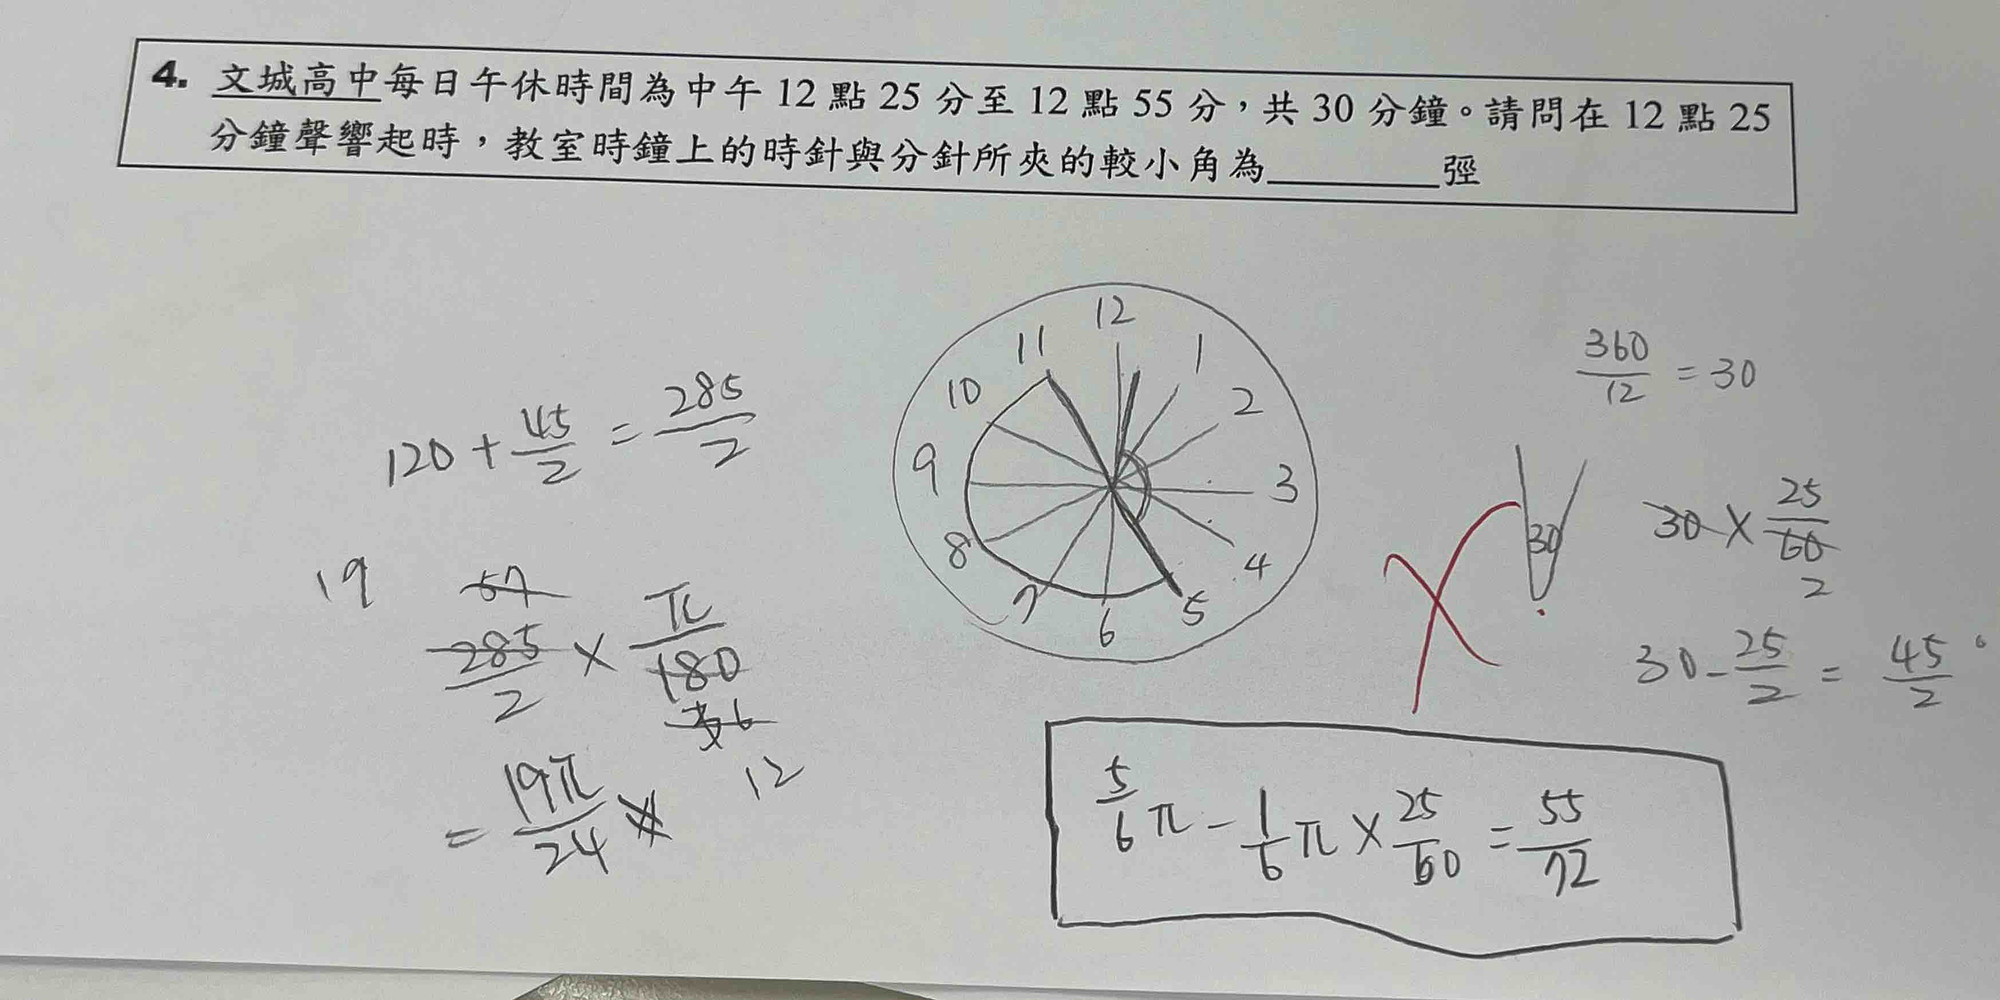 4. 文城高中每日午休時間為中午 12 點 25 分至 12 點 55 分，共 30 分鐘。請問在 12 點 25
分鐘聲響起時，教室時鐘上的時針與分針所夾的較小角為________弳
120 + 45/2 = 285/2
19 57
285/2 × π/180
36
12
= 19π/24
12
11 1
10 2
9 3
8 4
7 5
6
360/12 = 30
30
30 × 25/60
2
30 - 25/2 = 45/2°
5/6 π - 1/6 π × 25/60 = 55/72